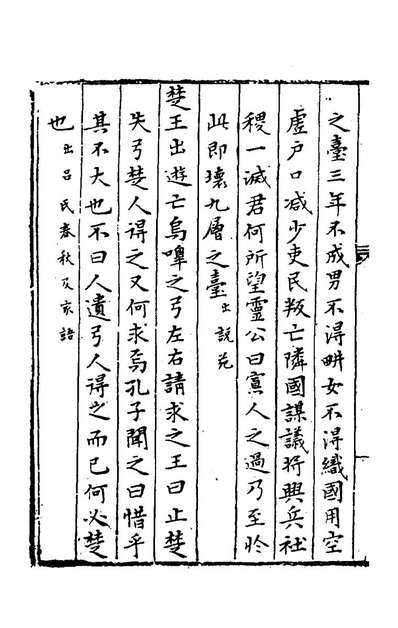 之臺三年不成男不得畊女不得織國用空
虛戶口减少吏民叛亡隣國謀議將興兵社
稷一滅君何所望靈公曰寡人之過乃至於
此即壞九層之臺出說苑
楚王出遊亡烏嘷之弓左右請求之王曰止楚
失弓楚人得之又何求焉孔子聞之曰惜乎
其不大也不曰人遺弓人得之而已何必楚
也出呂氏春秋及家語